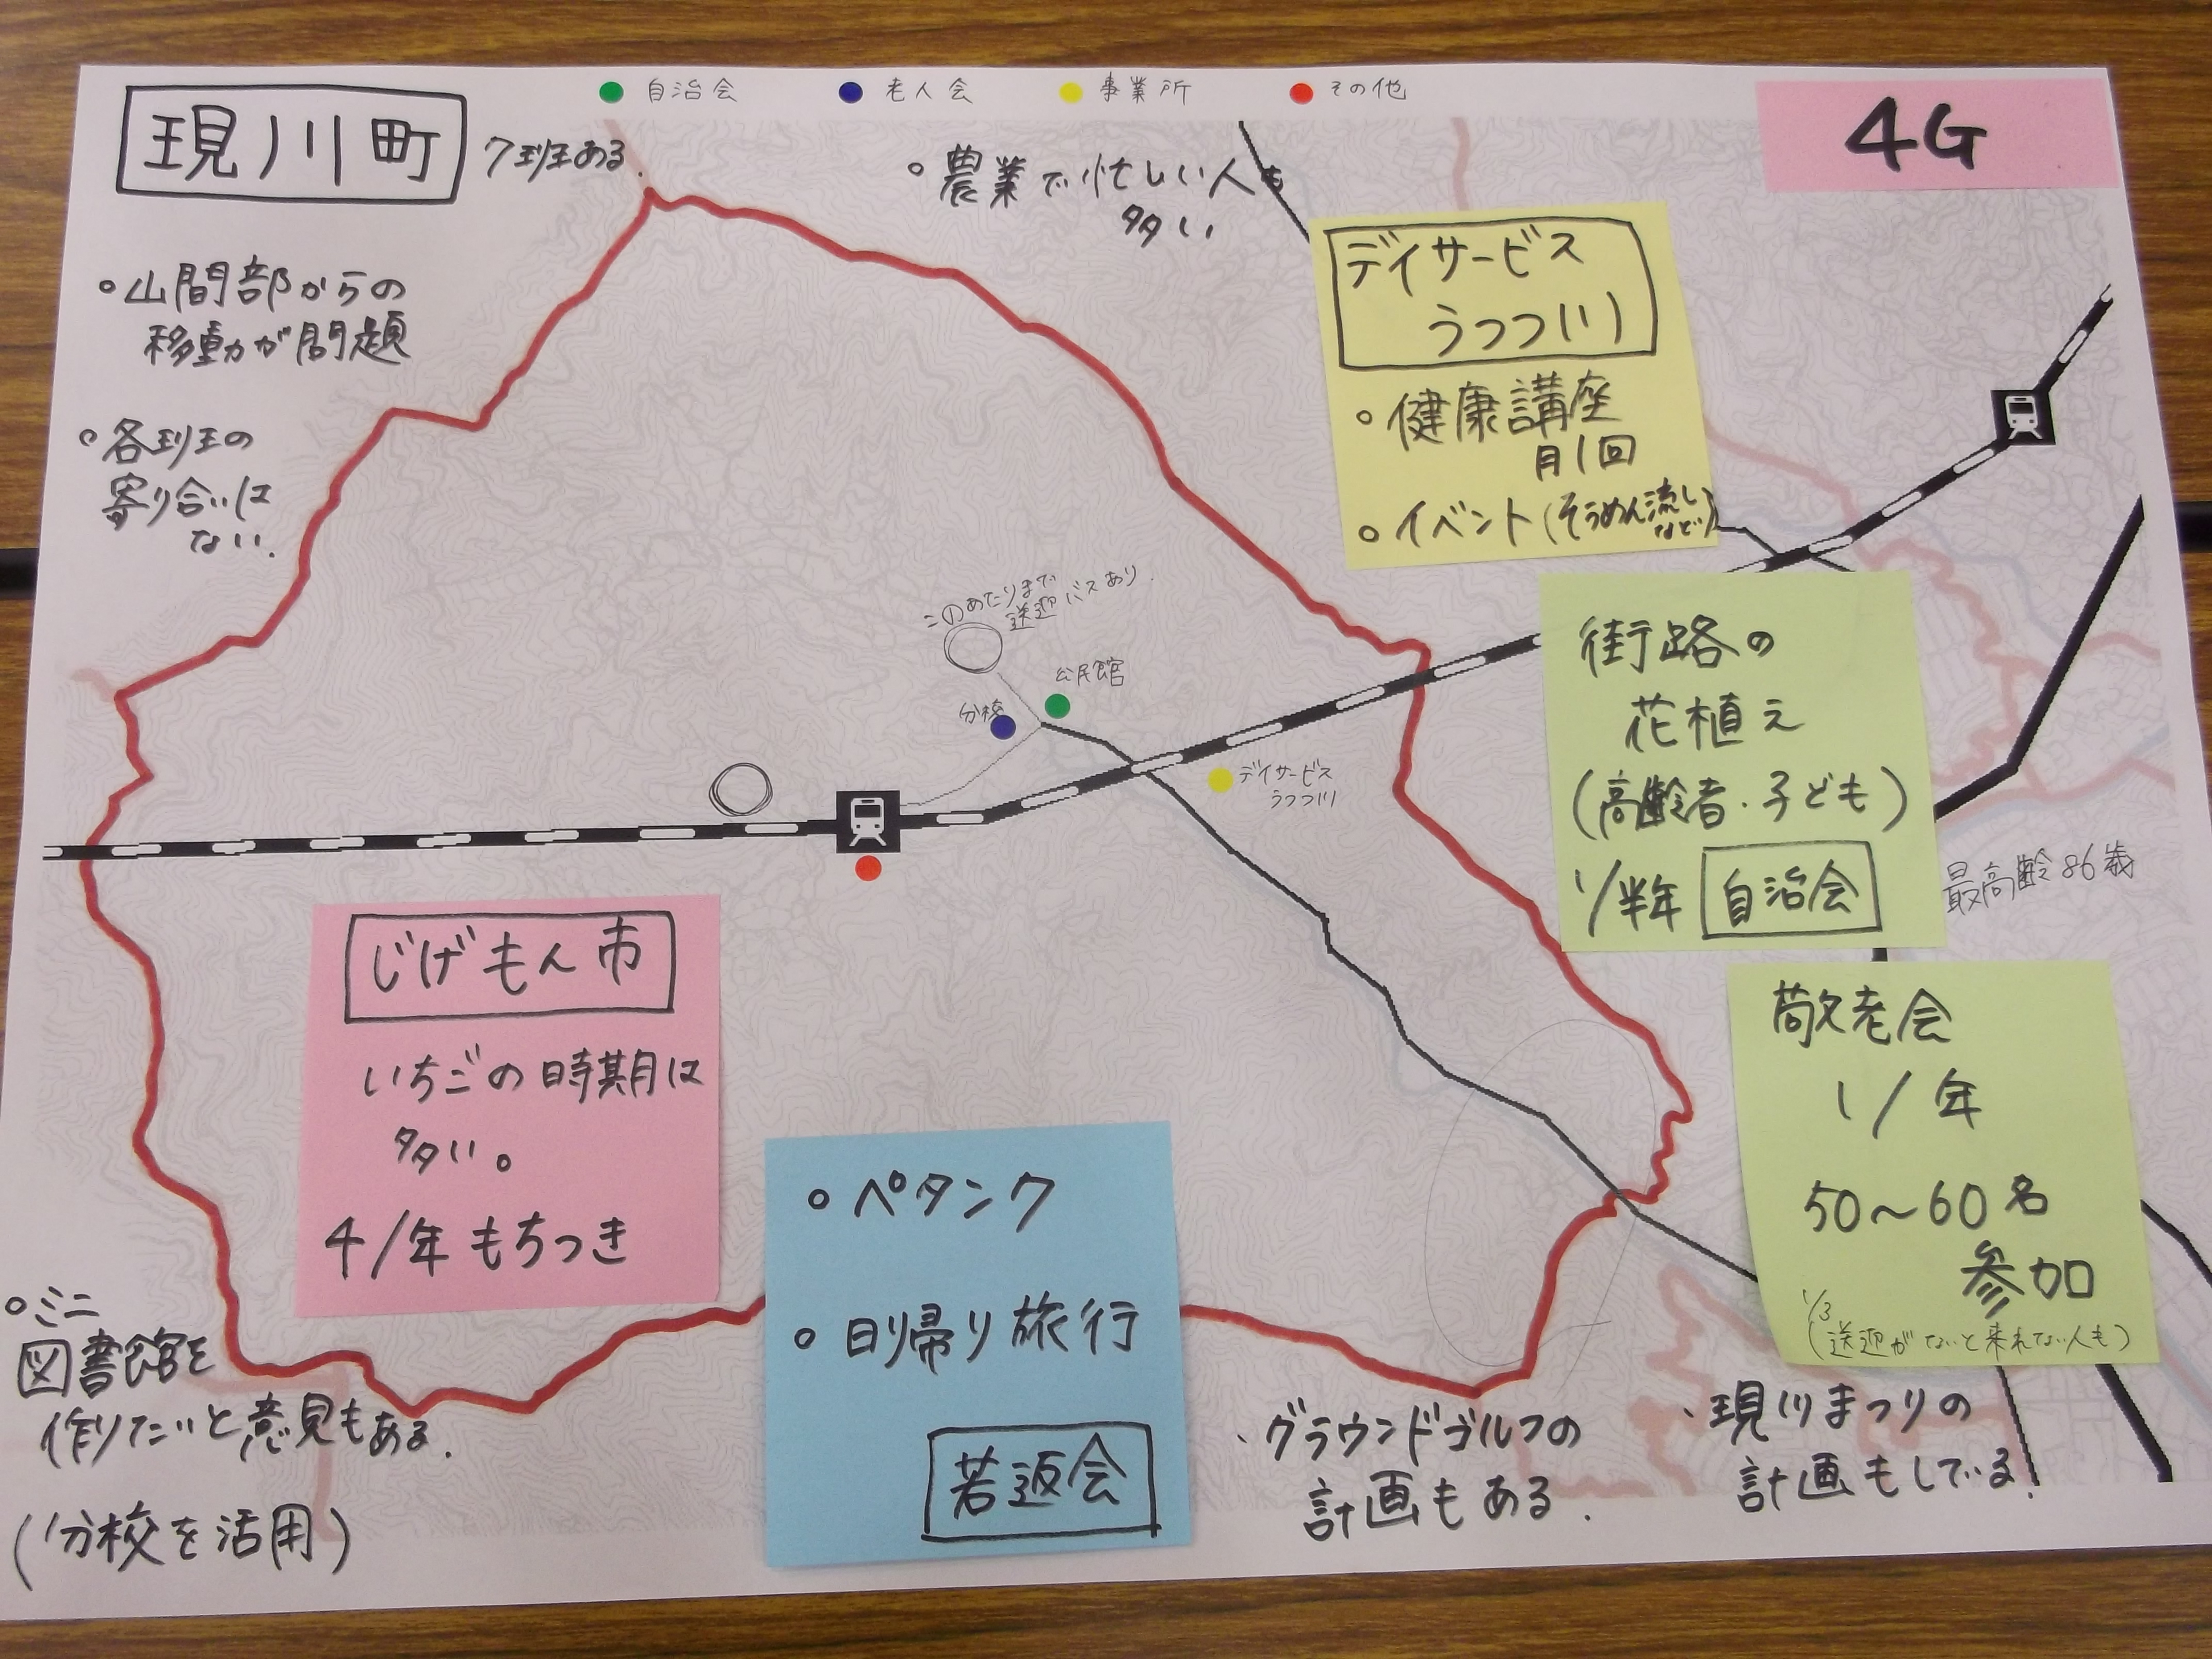 自治会
老人会
事業所
その他
現川町
7班ある.
4G
農業で忙しい人も
多い
山間部からの
移動が問題
各班の
寄り合いは
ない.
デイサービス
うつつ川
健康講座
月1回
イベント(そうめん流し
など)
このあたりまで
送迎バスあり.
公民館
分校
デイサービス
うつつ川
街路の
花植え
(高齢者・子ども)
1/半年 自治会
最高齢86歳
じげもん市
いちごの時期は
多い。
4/年 もちつき
敬老会
1/年
50~60名
参加
1/3
(送迎がないと来れない人も)
ペタンク
日帰り旅行
若返会
ミニ
図書館を
作りたいと意見もある.
(分校を活用)
・グラウンドゴルフの
計画もある.
・現川まつりの
計画もしている.